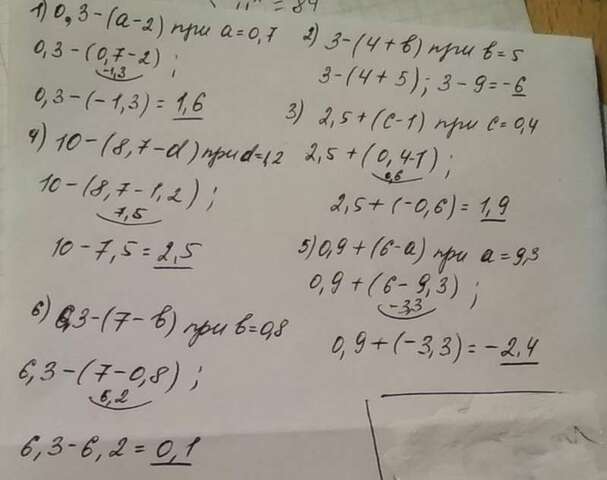 " = 84
1) 0,3-(a-2) при a=0,7
0,3-(0,7-2) ;
-1,3
0,3-(-1,3) = 1,6
2) 3-(4+b) при b=5
3-(4+5); 3-9=-6
3) 2,5+(c-1) при c=0,4
2,5+(0,4-1) ;
0,6
2,5+(-0,6) = 1,9
4) 10-(8,7-d) при d=1,2
10-(8,7-1,2) ;
7,5
10-7,5=2,5
5) 0,9+(6-a) при a=9,3
0,9+(6-9,3) ;
-3,3
0,9+(-3,3)=-2,4
6) 6,3-(7-b) при b=0,8
6,3-(7-0,8) ;
6,2
6,3-6,2=0,1